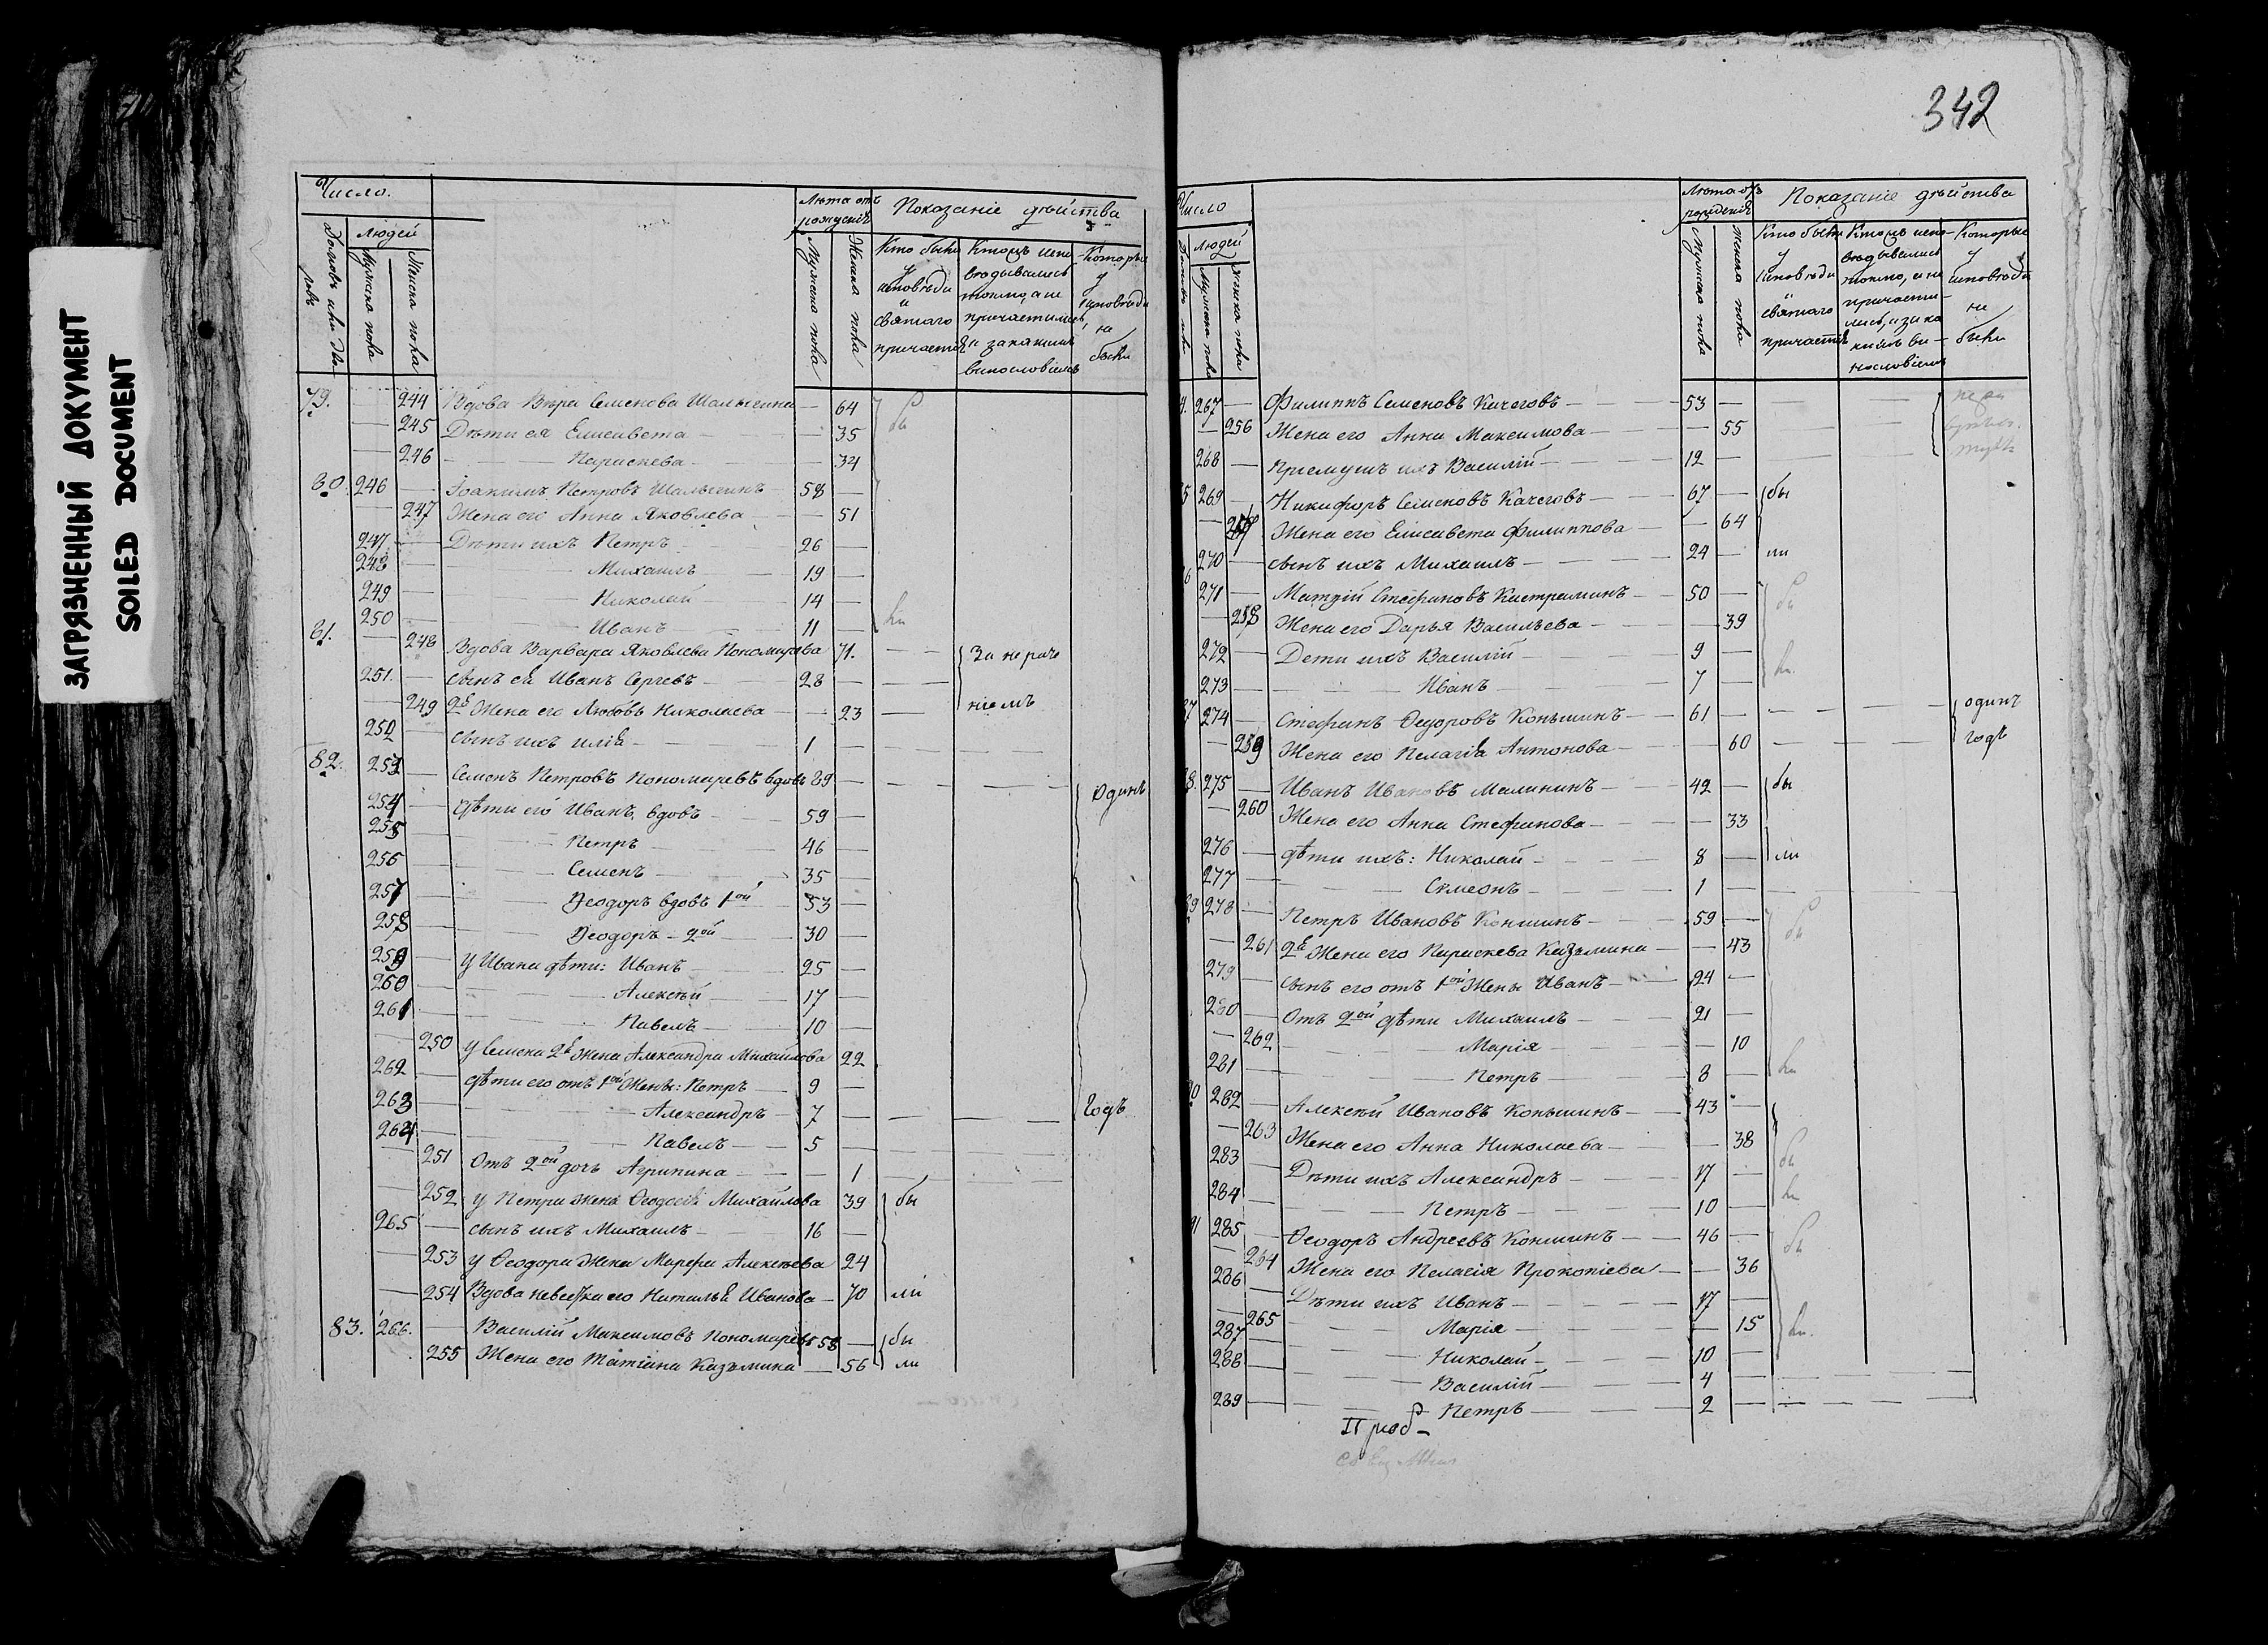 ЗАГРЯЗНЕННЫЙ ДОКУМЕНТ
SOILED DOCUMENT
Число.
Лѣта отъ рожденія
Показаніе дѣйства
Домовъ или дворовъ
Людей
Мужеска пола
Женска пола
Мужеска пола
Женска пола
Кто были у исповѣди и святаго причастія
Кто исповѣдывались токмо, а не причастились, и за какимъ винословіемъ
Которые у исповѣди не были
79. 244 Вдова Вѣра Семенова 64 бы
245 Дѣти ея Елисавета 35
246 Параскева 34
80. 246 Іоакимъ Петровъ 58
247 Жена его Анна Яковлева 51
247 Дѣти ихъ Петръ 26
248 Михаилъ 19
249 Николай 14
250 Иванъ 11 ли
81. 248 Вдова Варвара Яковлева Пономарева 71. За нераче
251. сынъ ея Иванъ Сергевъ 28
249 2я Жена его Любовь Николаева 23 ніемъ
252 сынъ ихъ илія 1
82. 253 Семенъ Петровъ Пономаревъ вдовъ 89 Одинъ
254 дѣти его Иванъ, вдовъ 59
255 Петръ 46
256 Семенъ 35
257 Ѳеодоръ вдовъ 1ой 53
258 Ѳеодоръ 2ой 30
259 у Ивана дѣти: Иванъ 25
260 Алексѣй 17
261 Павелъ 10
250 у Семена 2я Жена Александра Михайлова 22
262 дѣти его отъ 1ой Жены: Петръ 9
263 Александръ 7 Годъ
264 Павелъ 5
251 Отъ 2ой дочь Агрипина 1
252 у Петра жена Ѳеодосія Михайлова 39 бы
265 сынъ ихъ Михаилъ 16
253 у Ѳеодора Жена Марфа Алексѣева 24
254 Вдова невестка его Наталья Иванова 70 ли
83. 266. Василій Максимовъ Пономаревъ 58 бы
255 Жена его Татіана Казьмина 56 ли
342
Число
Лѣта отъ рожденія
Показаніе дѣйства
Людей
Мужеска пола
Женска пола
Мужеска пола
Женска пола
Кто были у исповѣди и святаго причастія
Кто исповѣдывались токмо, а не причастились, и за какимъ винословіемъ
Которые у исповѣди не были
4. 267 Филиппъ Семеновъ Качеговъ 53
256 Жена его Анна Максимова 55
268 Приемышъ ихъ Василій 12
5 269 Никифоръ Семеновъ Качеговъ 67 бы
257 Жена его Елисавета Филиппова 64
270 сынъ ихъ Михаилъ 24 ли
6 271 Матѳій Стефановъ Кастраминъ 50 бы
258 Жена его Дарья Васильева 39
272 Дети ихъ Василій 9 ли.
273 Иванъ 7
87 274 Стефанъ Ѳедоровъ Коньшинъ 61 одинъ
259 Жена его Пелагія Антонова 60 годъ
8. 275 Иванъ Ивановъ Малининъ 42 бы
260 Жена его Анна Стефанова 33
276 дѣти ихъ: Николай 8 ли
277 Симеонъ 1
89 278 Петръ Ивановъ Коншинъ 59 бы
261 2я Жена его Параскева Казьмина 43
279 сынъ его отъ 1ой Жены Иванъ 24
280 Отъ 2ой дѣти Михаилъ 21
262 Марія 10
281 Петръ 8 ли
90 282 Алексѣй Ивановъ Коньшинъ 43
263 Жена его Анна Николаева 38 бы
283 Дѣти ихъ Александръ 17 ли
284 Петръ 10
91 285 Ѳеодоръ Андреевъ Коншинъ 46 бы
264 Жена его Пелагія Прокопіева 36
286 Дѣти ихъ Иванъ 17
265 Марія 15 ли.
287 Николай 10
288 Василій 4
289 Петръ 2